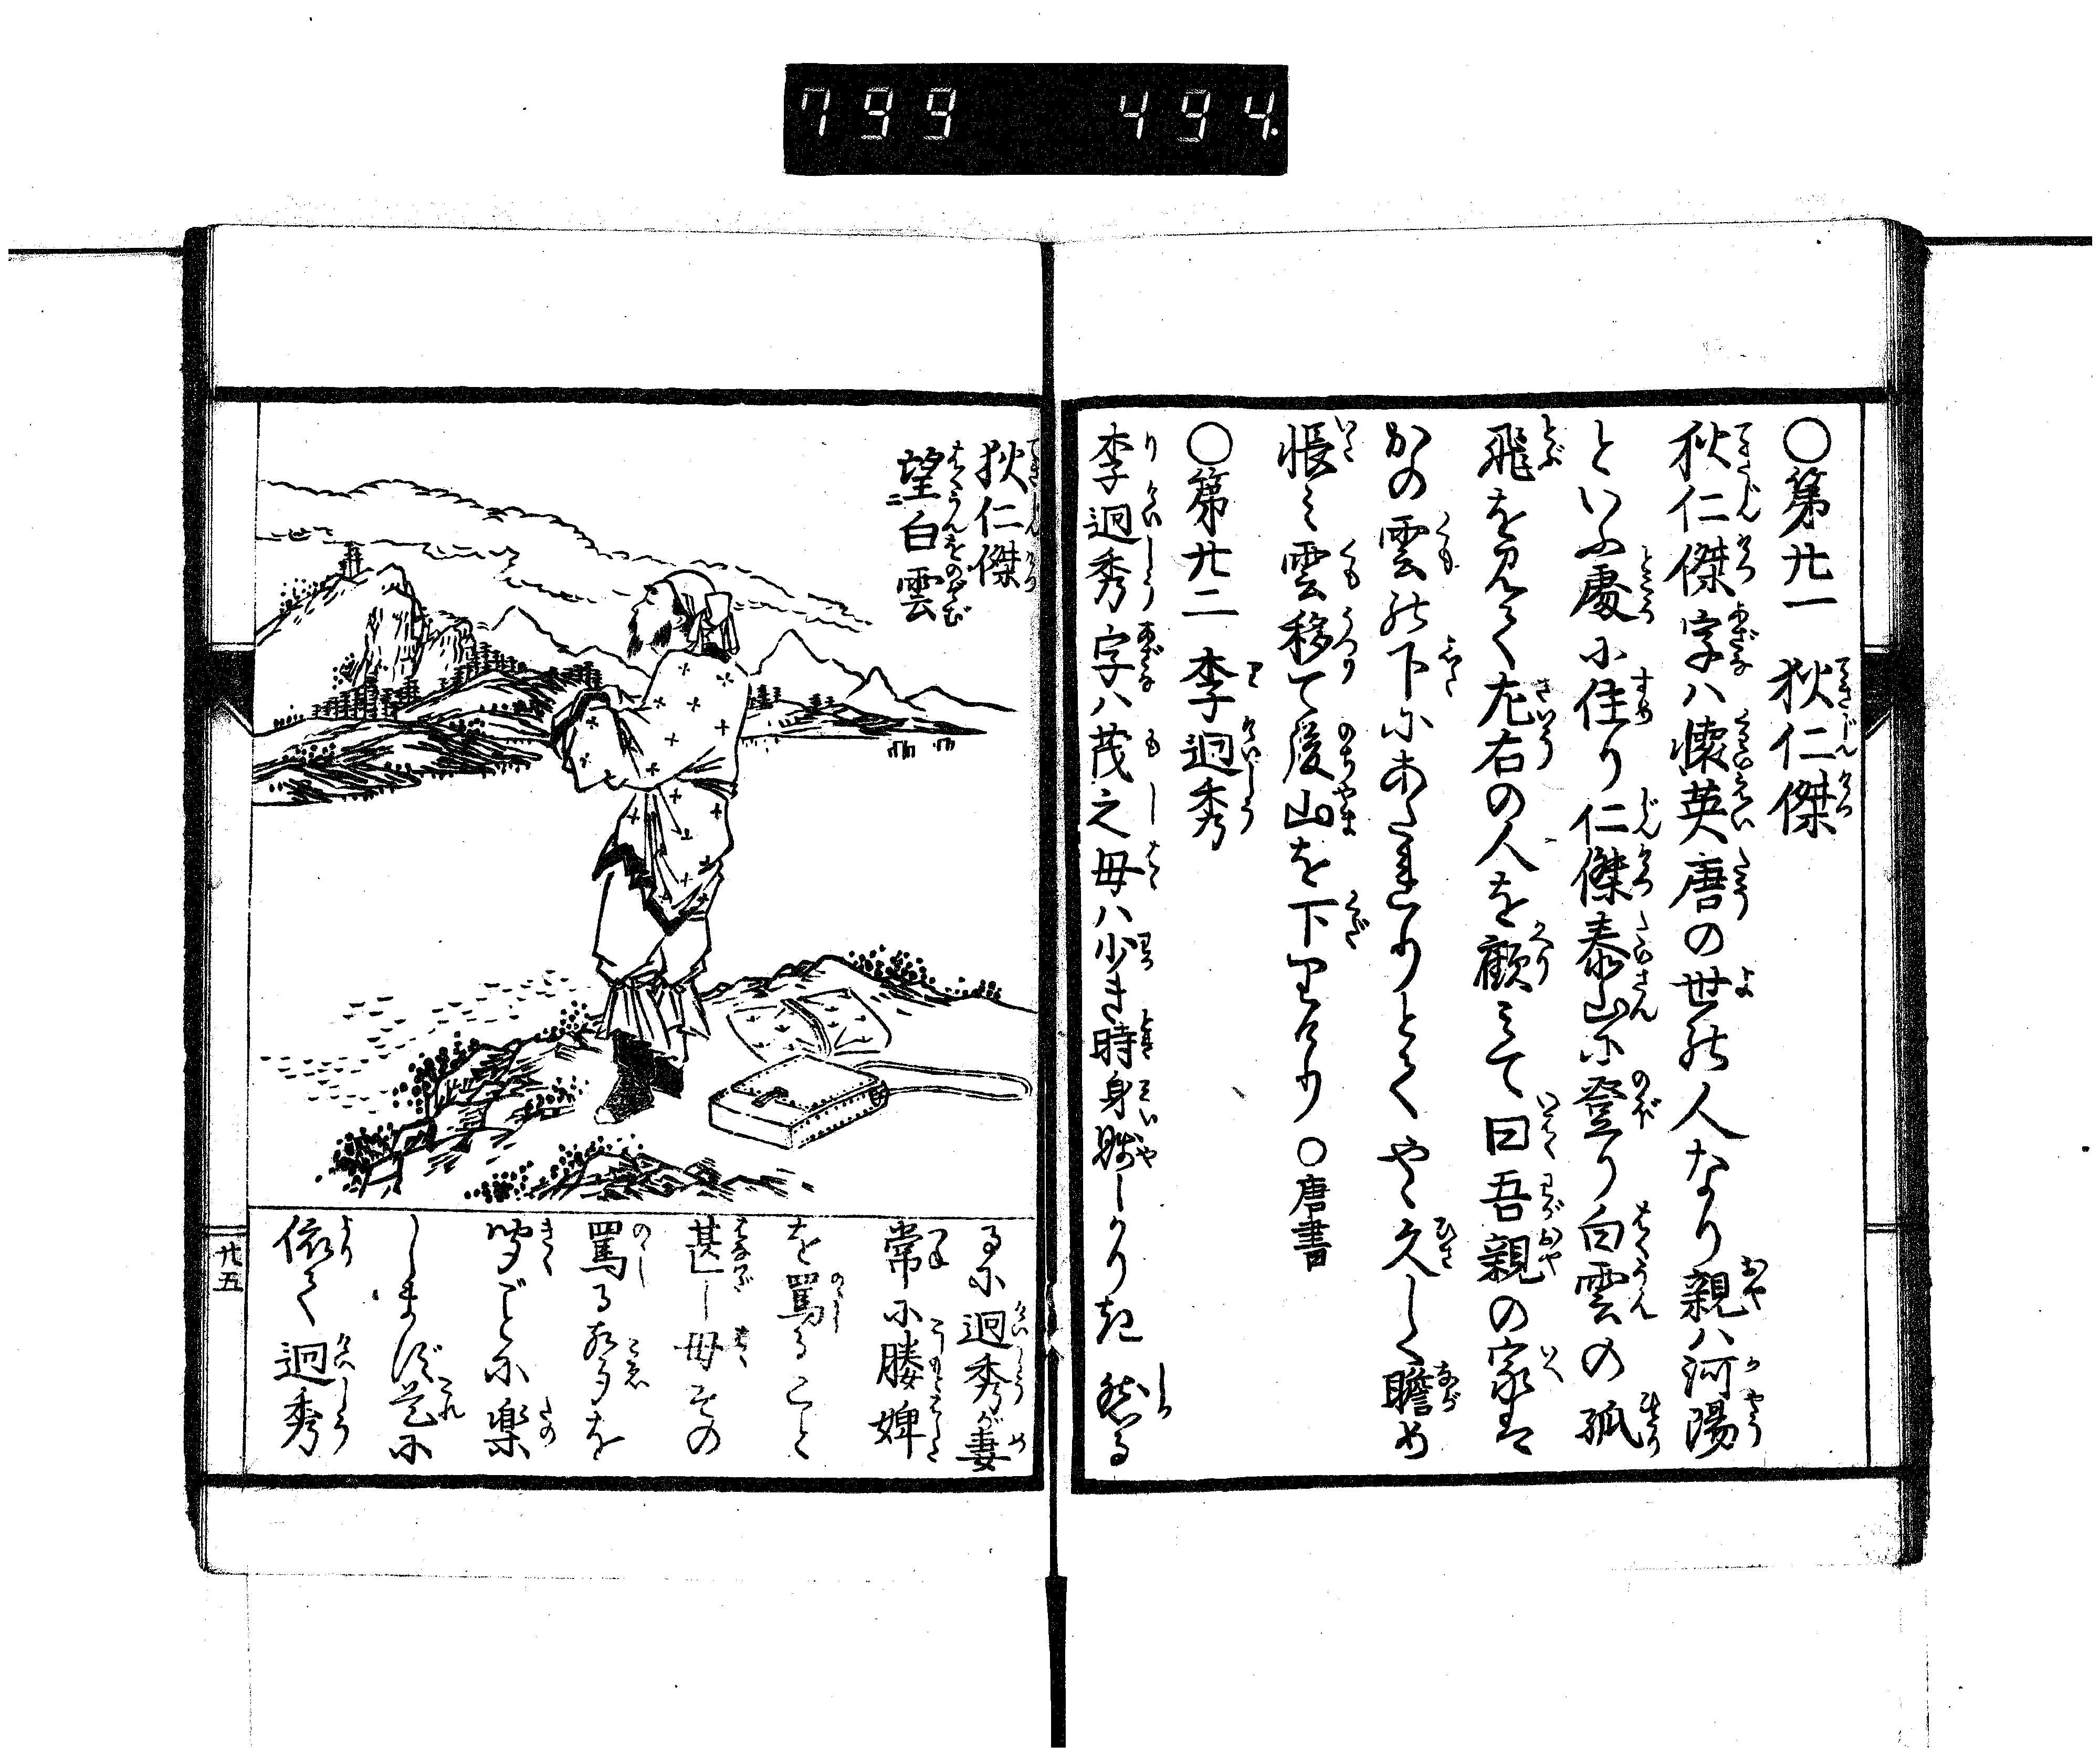 799 494.
○第廿一 狄仁傑
狄仁傑字ハ懐英唐の世の人なり親ハ河陽
といふ處に住り仁傑泰山に登り白雲の孤
飛を見て左右の人を顧みて曰吾親の家は
かの雲の下にあたれりとてやゝ久しく瞻め
悵み雲移て後山を下りけり ○唐書
○第廿二 李迥秀
李迥秀字ハ茂之母ハ少き時身賤しかりき然る
狄仁傑
望二白雲
るに迥秀が妻
常に媵婢
を罵ること
甚し母その
罵る声を
聞ごとに楽
しまず是に
依て迥秀
廿五